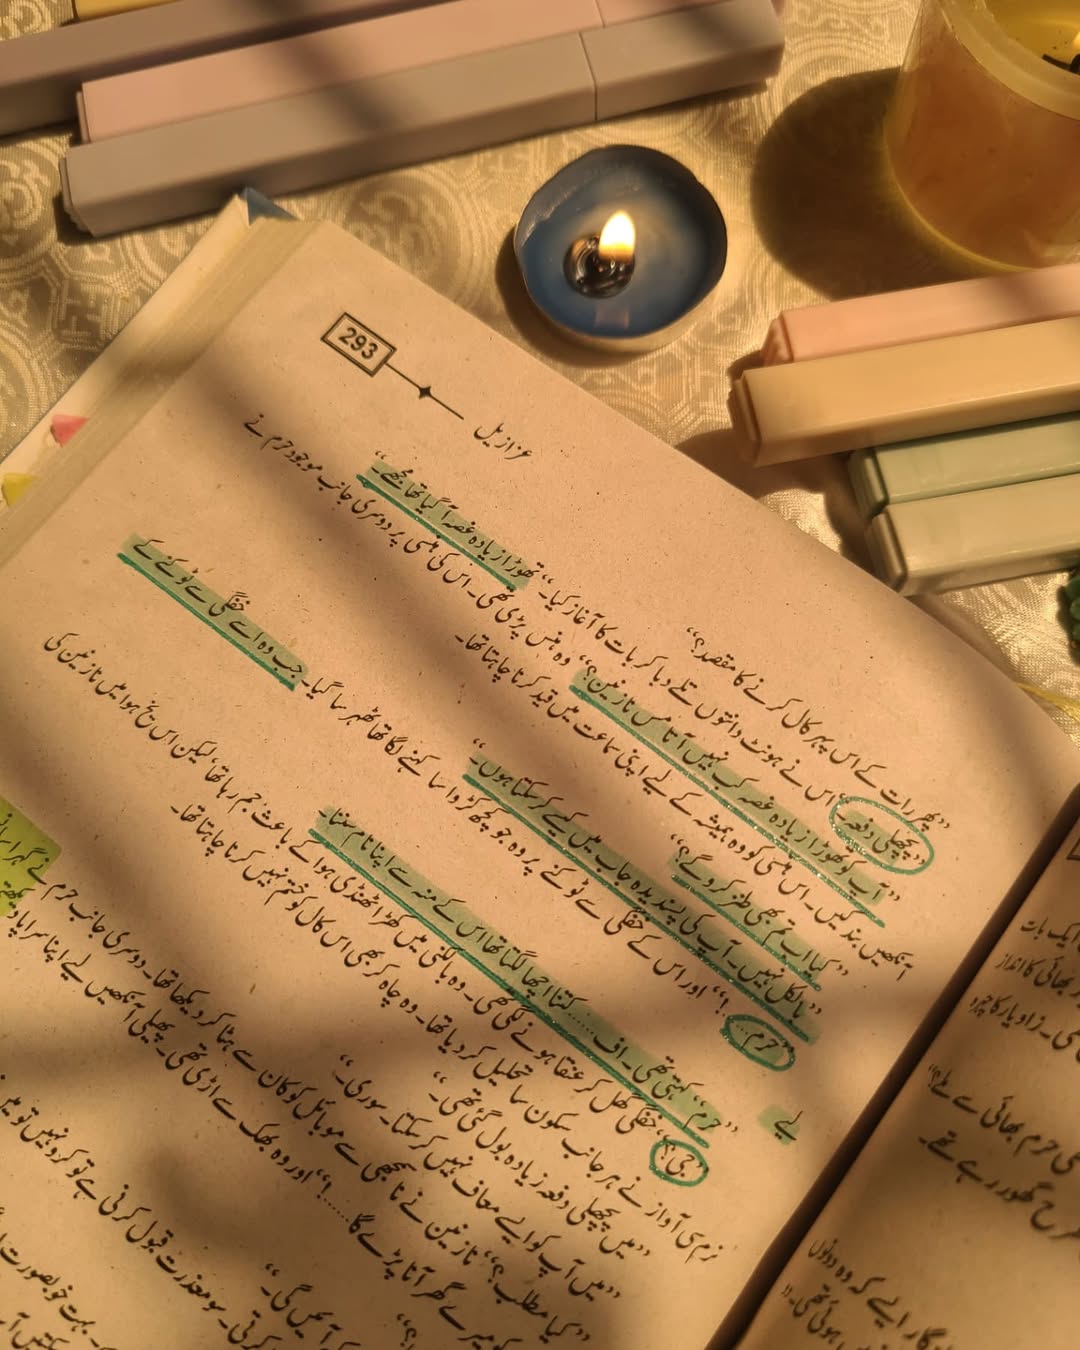 293
عزازیل
”پھر رات کے اس پہر کال کرنے کا مقصد؟“
”پچھلی دفعہ۔۔“ اس نے ہونٹ دانتوں تلے دبا کر بات کا آغاز کیا۔ ”تھوڑا زیادہ غصہ آ گیا تھا مجھے۔“
”آپ کو تھوڑا زیادہ غصہ کب نہیں آتا مس نازنین؟“ وہ ہنس پڑی تھی۔ اس کی ہنسی پر دوسری جانب موجود حرم نے
آنکھیں بند کیں۔ اس ہنسی کو وہ ہمیشہ کے لیے اپنی سماعت میں قید کرنا چاہتا تھا۔
”کیا اب تم بھی طنز کرو گے؟“
”بالکل نہیں۔ آپ کی پسندیدہ جاب میں کیسے کر سکتا ہوں۔“
”حرم۔۔۔!“ اور اس کے خفگی سے ٹوکنے پر وہ جو کچھ کڑوا سا کہنے لگا تھا ٹھہر سا گیا۔ جب وہ اسے خفگی سے ٹوکنے کے
لیے
”حرم“ کہتی تھی۔ اف۔۔۔۔۔ کتنا اچھا لگتا تھا اس کے منہ سے اپنا نام سننا۔
”جی؟“ خفگی گھل کر عنقا ہونے لگی تھی۔ وہ بالکنی میں کھڑا ٹھنڈی ہوا کے باعث جم رہا تھا، لیکن اس یخ ہوا میں نازنین کی
نرم سی آواز نے ہر جانب سکون سا تحلیل کر دیا تھا۔ وہ چاہ کر بھی اس کال کو ختم نہیں کرنا چاہتا تھا۔
”میں پچھلی دفعہ زیادہ بول گئی تھی۔“
”میں آپ کو ایسے معاف نہیں کر سکتا۔ سوری۔“
”کیا مطلب؟“ نازنین نے ناسمجھی سے موبائل کو کان سے ہٹا کر دیکھا تھا۔ دوسری جانب حرم نے گہرا سانس
میرے گھر آنا پڑے گا۔۔۔۔۔!“ اور وہ بھک سے اڑی تھی۔ پھیلی آنکھیں لیے اپنا سراپا
کر آئیں گی۔“
کرتی۔ سو معذرت قبول کرنی ہے تو کرو نہیں تو میں
بہت خوبصورت
ایک بات
بھائی کا انداز
زاویار کا چہرہ
حرم بھائی سے ملے؟“
طرح گھور رہے تھے۔
ایسے کہ وہ دونوں
ہوئی تھی۔“